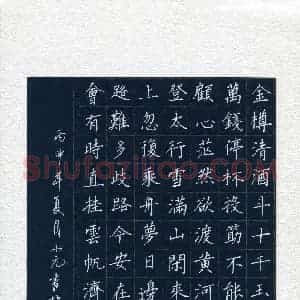 金樽清酒斗十千玉
萬錢停杯投筯不能
顧心茫然欲渡黃河
登太行雪滿山閑來
上忽復乘舟夢日邊
路難多歧路今安在
會有時直挂雲帆濟
丙申年夏月小元書
Shufaziliao.com